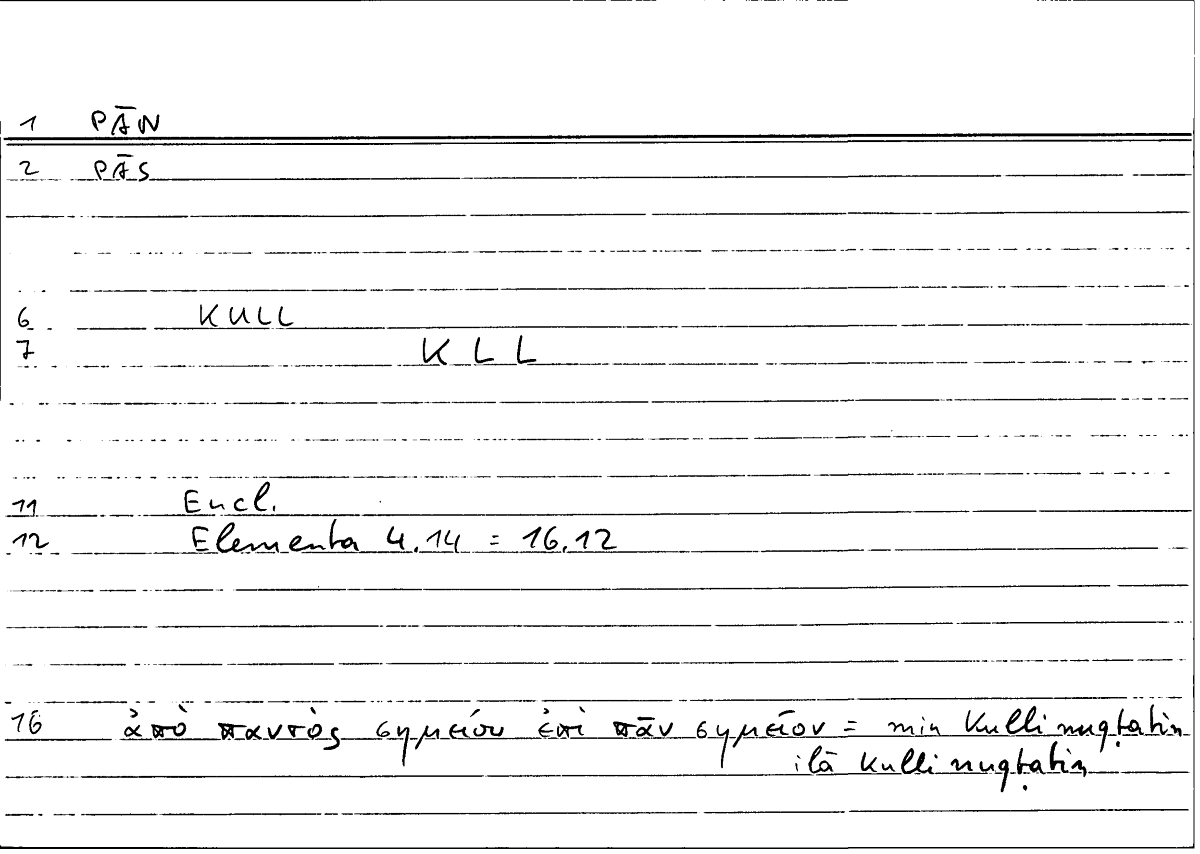 1 PĀN
2 PĀS
6 KULL
7 K L L
11 Eucl.
12 Elementa 4.14 = 16.12
16 ἀπὸ παντὸς σημείου ἐπὶ πᾶν σημεῖον = min kulli nuqṭatin
ilā kulli nuqṭatin